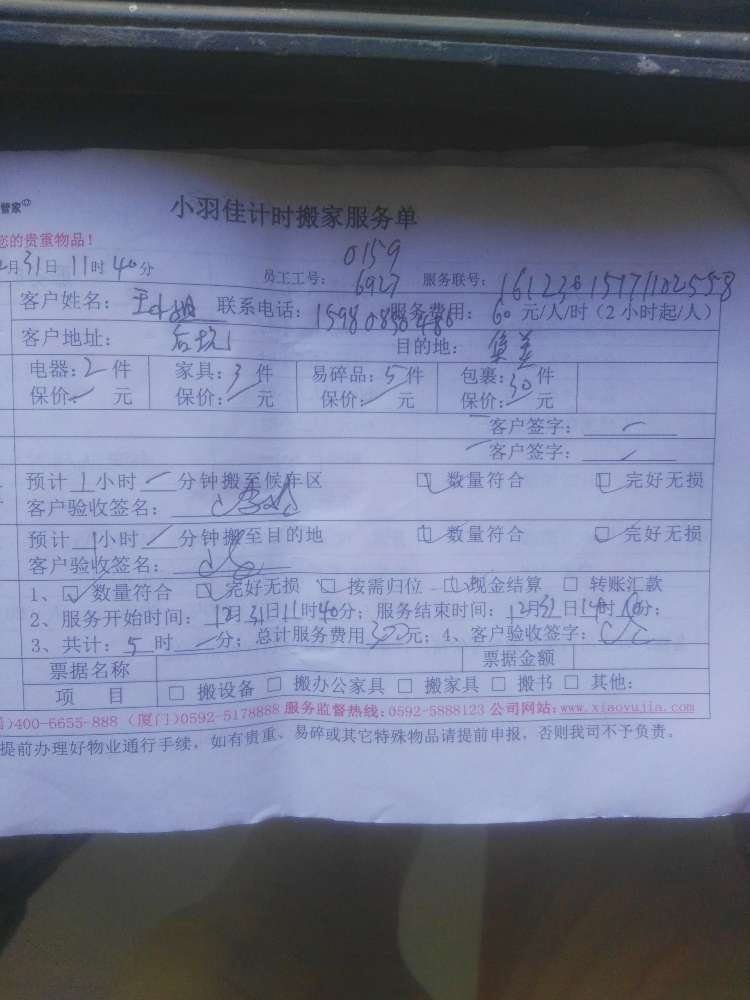 管家
小羽佳计时搬家服务单
您的贵重物品！
月31日11时40分 员工工号：0159 6927 服务联号：
客户姓名： 联系电话： 服务费用：60元/人/时（2小时起/人）
客户地址：后坑 目的地：集美
电器：2件 家具：3件 易碎品：5件 包裹：30件
保价： 元 保价： 元 保价： 元 保价： 元
客户签字：
客户签字：
预计1小时 分钟搬至候车区 数量符合 完好无损
客户验收签名：
预计1小时 分钟搬至目的地 数量符合 完好无损
客户验收签名：
1、 数量符合 完好无损 按需归位 现金结算 转账汇款
2、服务开始时间：12月31日11时40分；服务结束时间：12月31日14时10分；
3、共计：5时 分；总计服务费用300元；4、客户验收签字：
票据名称 票据金额
项 目 搬设备 搬办公家具 搬家具 搬书 其他：
)400-6655-888 (厦门)0592-5178888 服务监督热线：0592-5888123 公司网站：www.xiaoyujia.com
提前办理好物业通行手续，如有贵重、易碎或其它特殊物品请提前申报，否则我司不予负责。